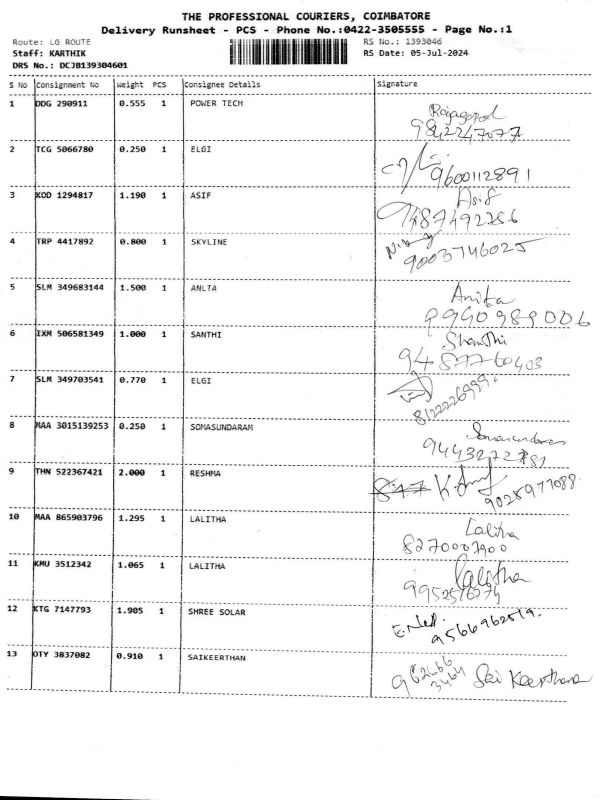 THE PROFESSIONAL COURIERS, COIMBATORE
Delivery Runsheet - PCS - Phone No.:0422-3505555 - Page No.:1
Route: LG ROUTE RS No.: 1393046
Staff: KARTHIK RS Date: 05-Jul-2024
DRS No.: DCJB139304601
S No Consignment No Weight PCS Consignee Details Signature
1 DDG 290911 0.555 1 POWER TECH Rajagopal
9842247077
2 TCG 5066780 0.250 1 ELGI
9600112891
3 KOD 1294817 1.190 1 ASIF Asif
9487492786
4 TRP 4417892 0.800 1 SKYLINE
9003746025
5 SLM 349683144 1.500 1 ANLTA Anita
9990989006
6 IXM 506581349 1.000 1 SANTHI Shanthi
9487760403
7 SLM 349703541 0.770 1 ELGI
8122226999
8 MAA 3015139253 0.250 1 SOMASUNDARAM Somasundaram
9443272781
9 THN 522367421 2.000 1 RESHMA
9028977088
10 MAA 865903796 1.295 1 LALITHA Lalitha
8270007900
11 KMU 3512342 1.065 1 LALITHA Lalitha
9952576274
12 KTG 7147793 1.905 1 SHREE SOLAR
9566962519.
13 OTY 3837082 0.910 1 SAIKEERTHAN
962666
3464 Sai Keerthana